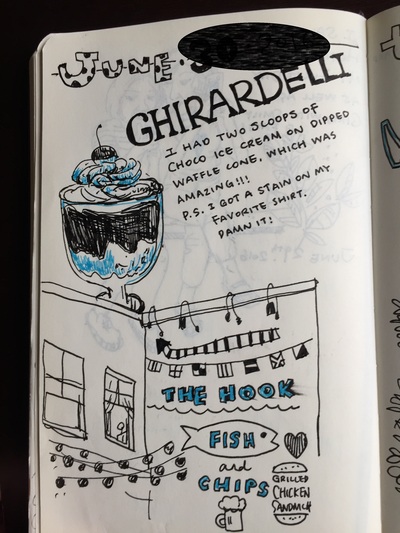 JUNE 30
GHIRARDELLI
I HAD TWO SCOOPS OF
CHOCO ICE CREAM ON DIPPED
WAFFLE CONE, WHICH WAS
AMAZING!!!
P.S. I GOT A STAIN ON MY
FAVORITE SHIRT.
DAMN IT!
THE HOOK
FISH
and
CHIPS
GRILLED
CHICKEN
SANDWICH